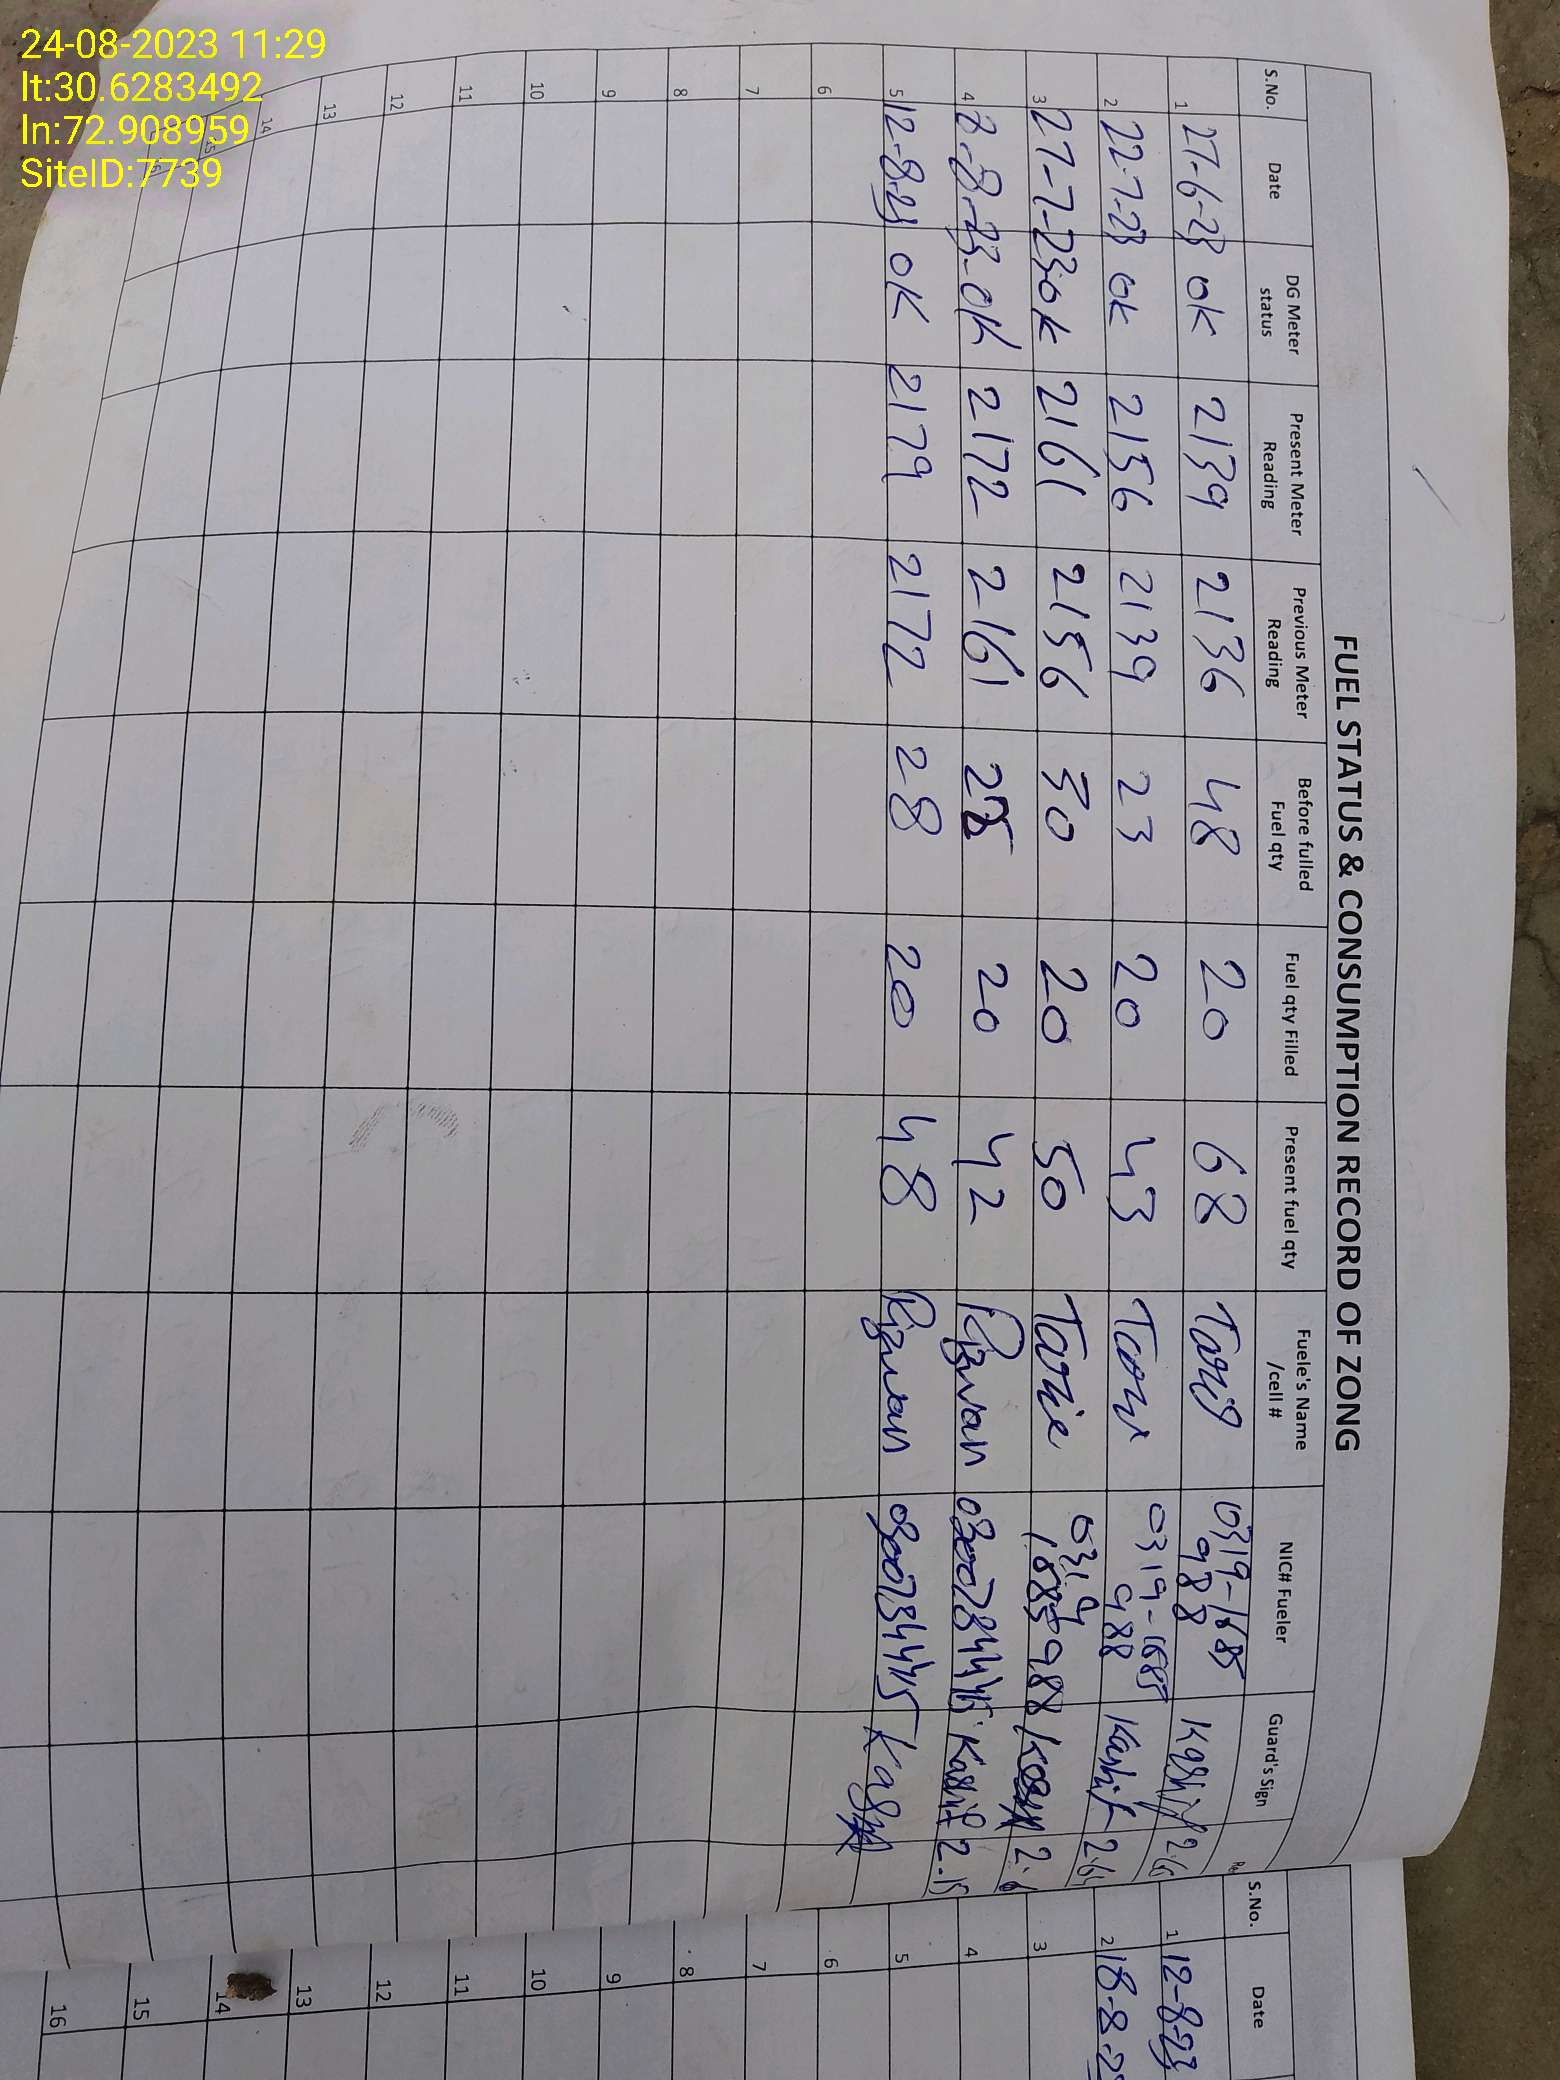 24-08-2023 11:29
lt:30.6283492
ln:72.908959
SiteID:7739
FUEL STATUS & CONSUMPTION RECORD OF ZONG
S.No. Date DG Meter status Present Meter Reading Previous Meter Reading Before fulled Fuel qty Fuel qty Filled Present fuel qty Fuele's Name /cell # NIC# Fueler Guard's Sign
1 27-6-23 ok 2139 2136 48 20 68 0319-1685 988 Kashif
2 22-7-23 ok 2156 2139 23 20 43 0319-1685 988 Kashif
3 27-7-23 ok 2161 2156 30 20 50 Tarie 0319 1685988
4 8-8-23- ok 2172 2161 20 42 Rizwan Kashif 2.15
5 12-8-23 ok 2179 2172 28 20 48 Rizwan
6
7
8
9
10
11
12
13
14
15
16
S.No. Date
1 12-8-23
2 18-8-2
3
4
5
6
7
8
9
10
11
12
13
14
15
16